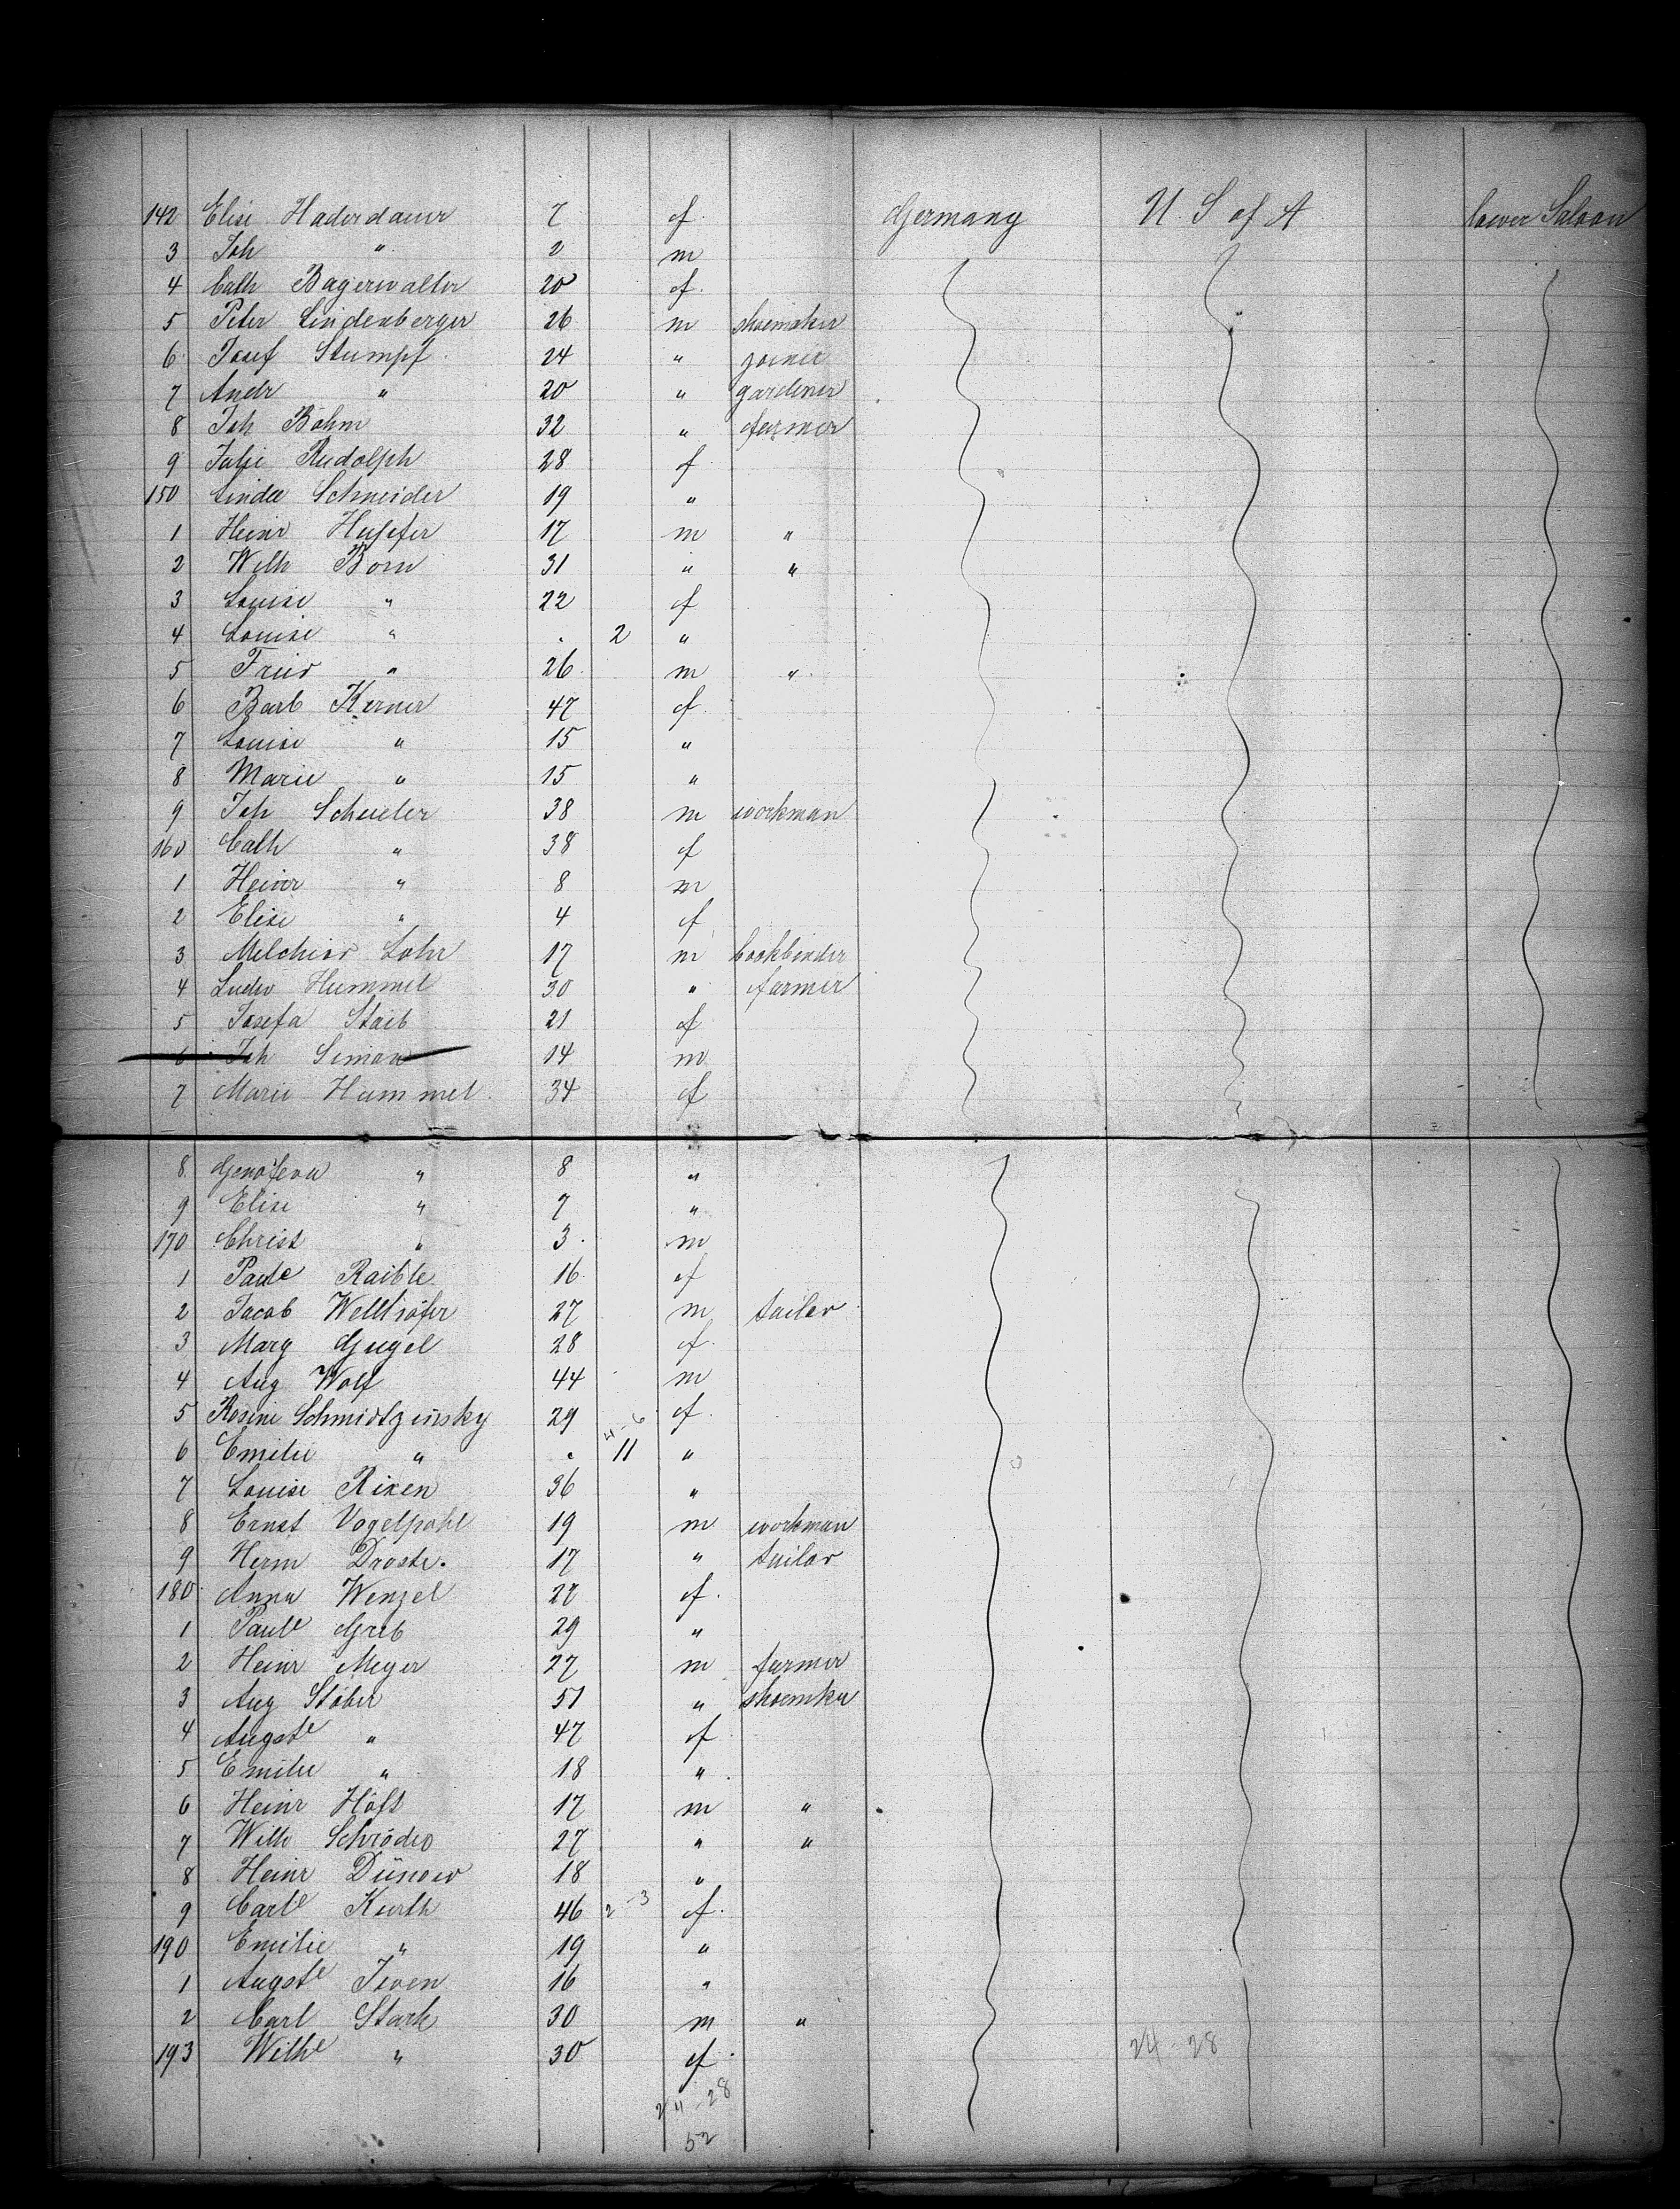 142 Elise Haderdauer 7 f. Germany U. S of A lower Saloon
3 Joh " 2 m
4 Cath Bagerwalter 20 f.
5 Peter Lindenberger 26 m shoemaker
6 Josef Stumpf 24 " joiner
7 Andr " 20 " gardener
8 Joh Bohm 32 " farmer
9 Julie Rudolph 28 f
150 Linda Schneider 19 "
1 Heinr Hupfer 17 m "
2 Wilh Born 31 " "
3 Louise " 22 f
4 Louise " . 2 "
5 Fried " 26 m "
6 Barb Kerner 47 f.
7 Louise " 15 "
8 Marie " 15 "
9 Joh Schueler 38 m workman
160 Cath " 38 f
1 Heinr " 8 m
2 Elise " 4 f
3 Melchior Lohr 17 m bookbinder
4 Ludw Hummel 30 " farmer
5 Josefa Staib 21 f
6 Joh Simon 14 m
7 Marie Hummel 34 f
8 Genofeva " 8 "
9 Elise " 7 "
170 Christ " 3 m
1 Paule Raible 16 f
2 Jacob Wellhöfer 27 m tailor
3 Marg Gugel 28 f.
4 Aug Wolf 44 m
5 Rosine Schmidtzinsky 29 f.
4-6
6 Emilie " . 11 "
7 Louise Rixen 36 "
8 Ernst Vogelpohl 19 m workman
9 Herm Droste. 17 " tailor
180 Anna Wenzel 22 f.
1 Paule Greb 29 "
2 Heinr Meyer 27 m farmer
3 Aug Stöber 51 " shoemker
4 Auguste " 47 f
5 Emilie " 18 "
6 Heinr Höft 17 m "
7 Wilh Schröder 27 " "
8 Heinr Dünow 18 "
9 Carle Kurth 46 2-3 f.
190 Emilie " 19 "
1 Auguste Iven 16 "
2 Carl Stark 30 m "
193 Wilhe " 30 f. 24-28
24-28
52